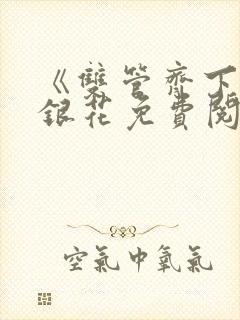 《雙管齊下
銀花免費閱
空氣中氧氣